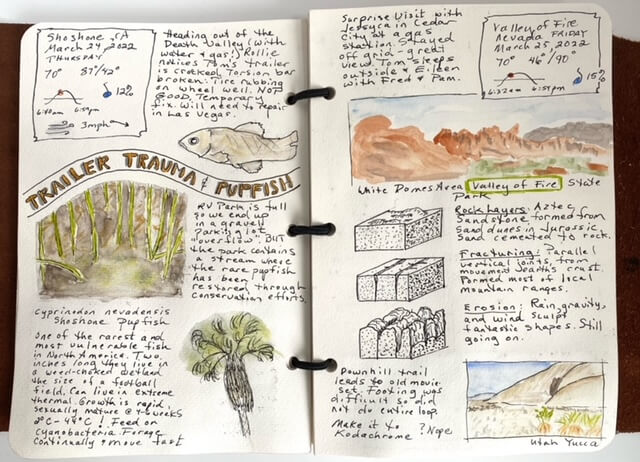 Shoshone, CA
March 24, 2022
THURSDAY
70° 87°/42°
12%
6:59pm
3mph
Heading out of the
Death Valley (with
water & gas!) Rollie
notices Tom's trailer
is crooked. Torsion bar
broken. Tire rubbing
on wheel well. NOT
GOOD. Temporary
fix. Will need to repair
in Las Vegas.
TRAILER TRAUMA & PUPFISH
RV Park is full
so we end up
in a gravel
Parking lot
"overflow". BUT
the park contains
a stream where
the rare pupfish
has been
restored through
conservation efforts.
Cyprinodon nevadensis
Shoshone Pupfish
One of the rarest and
most vulnerable fish
in North America. Two
inches long they live in
a weed-choked wetland
the size of a football
field. Can live in extreme
thermal. Growth is rapid,
sexually mature @ 4-6 weeks
2°C - 44°C! Feed on
cyanobacteria. Forage
continually & move fast
Surprise Visit with
Jessyca in Cedar
city at a gas
station. Stayed
off grid - great
view. Tom sleeps
outside & Eileen
with Fred & Pam.
Valley of Fire
Nevada FRIDAY
March 25, 2022
70° 46°/90°
15%
6:59pm
White Domes Area Valley of Fire State
Park
Rock Layers: Aztec
Sandstone formed from
Sand dunes in Jurassic.
Sand cemented to rock.
Fracturing: Parallel
vertical joints from
movement earths crust.
Formed most of local
mountain ranges.
Erosion: Rain, gravity,
and wind sculpt
fantastic shapes. Still
going on.
Downhill trail
leads to old movie
set. Footing was
difficult so did
not do entire loop.
Make it to ? Nope
Kodachrome
Utah Yucca